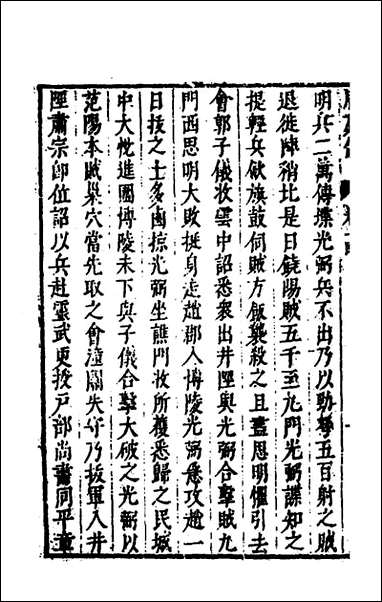 明兵二萬傳堞光弼兵不出乃以勁弩五百射之賊
退徙陣稍北是日饒陽賊五千至九門光弼諜知之
提輕兵歛旗鼓伺賊方飯襲殺之且盡思明懼引去
會郭子儀收雲中詔悉衆出井陘與光弼合擊賊九
門西思明大敗挺身走趙郡入博陵光弼急攻趙一
日拔之士多鹵掠光弼坐譙門收所獲悉歸之民城
中大恱進圍博陵未下與子儀合擊大破之光弼以
范陽本賊巢穴當先取之會潼關失守乃拔軍入井
陘肅宗即位詔以兵赴靈武更授戸部尚書同平章